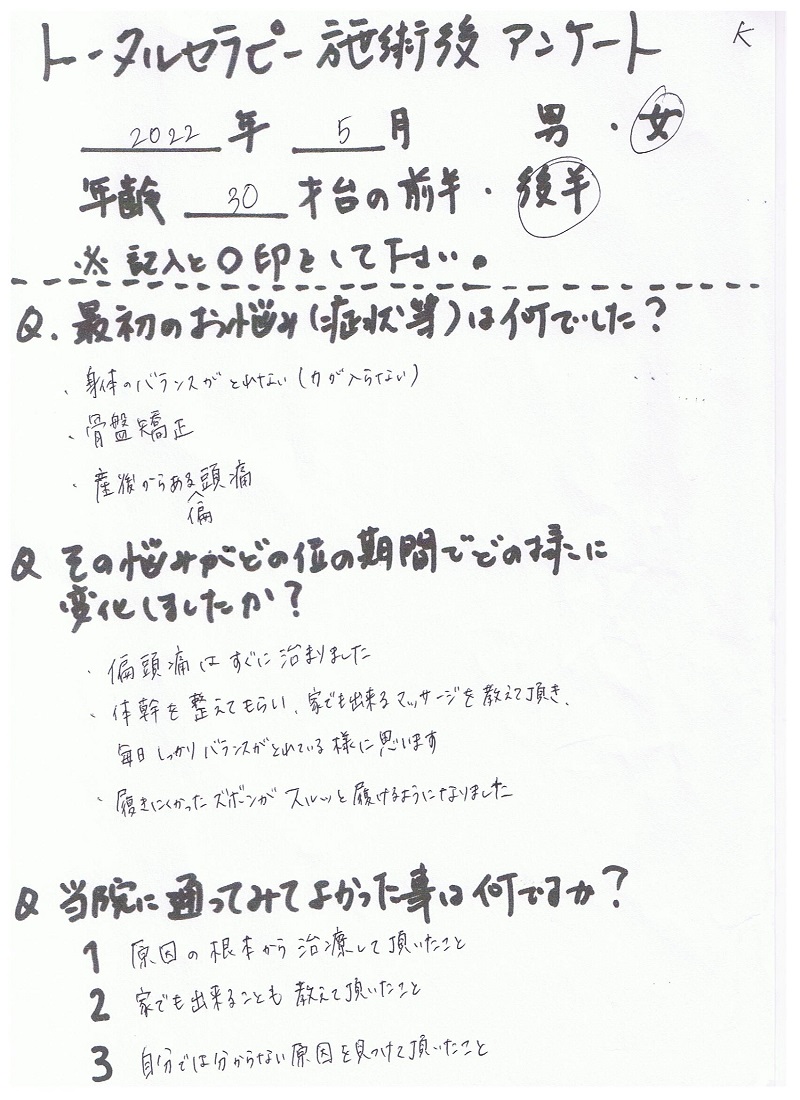 K
トータルセラピー施術後 アンケート
2022 年 5 月 男・女
年齢 30 才台の前半・後半
※ 記入と〇印をして下さい。
Q. 最初のお悩み(症状等)は何でしたか?
・身体のバランスがとれない(力が入らない)
・骨盤矯正
・産後からある頭痛
偏
Q その悩みがどの位の期間でどの様に
変化しましたか?
・偏頭痛はすぐに治まりました
・体幹を整えてもらい、家でも出来るマッサージを教えて頂き、
毎日しっかりバランスがとれている様に思います
・履きにくかったズボンがスルッと履けるようになりました
Q 当院に通ってみてよかった事は何ですか?
1 原因の根本から治療して頂いたこと
2 家でも出来ることも教えて頂いたこと
3 自分では分からない原因を見つけて頂いたこと